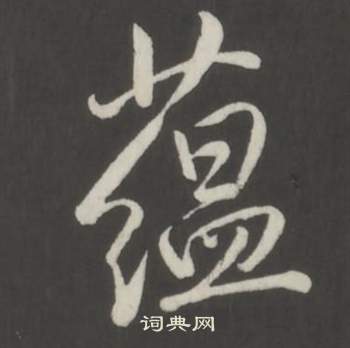 蕴
词典网